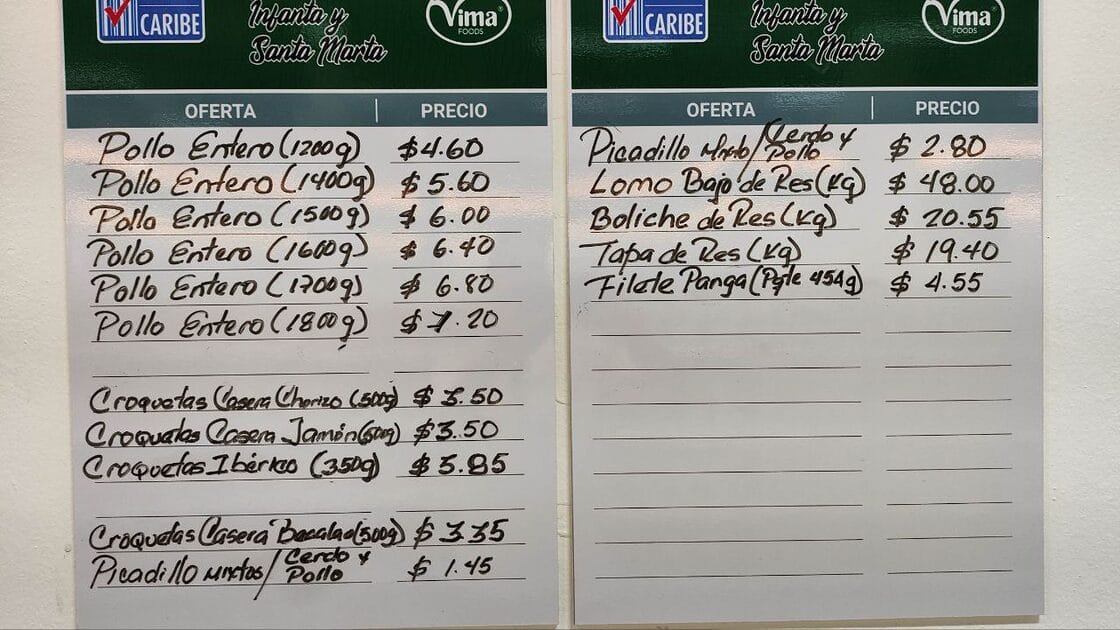 CARIBE
Infanta y
Santa Marta
Vima
FOODS
OFERTA | PRECIO
Pollo Entero (1200g) $4.60
Pollo Entero (1400g) $5.60
Pollo Entero (1500g) $6.00
Pollo Entero (1600g) $6.40
Pollo Entero (1700g) $6.80
Pollo Entero (1800g) $7.20
Croquetas Casera Chorizo (500g) $3.50
Croquetas Casera Jamón (500g) $3.50
Croquetas Ibérico (350g) $3.85
Croquetas Casera Bacalao (500g) $3.35
Picadillo Mixtos/Cerdo y Pollo $1.45
CARIBE
Infanta y
Santa Marta
Vima
FOODS
OFERTA | PRECIO
Picadillo Mixto/Cerdo y Pollo $2.80
Lomo Bajo de Res (Kg) $48.00
Boliche de Res (Kg) $20.55
Tapa de Res (Kg) $19.40
Filete Panga (Pqte 454g) $4.55